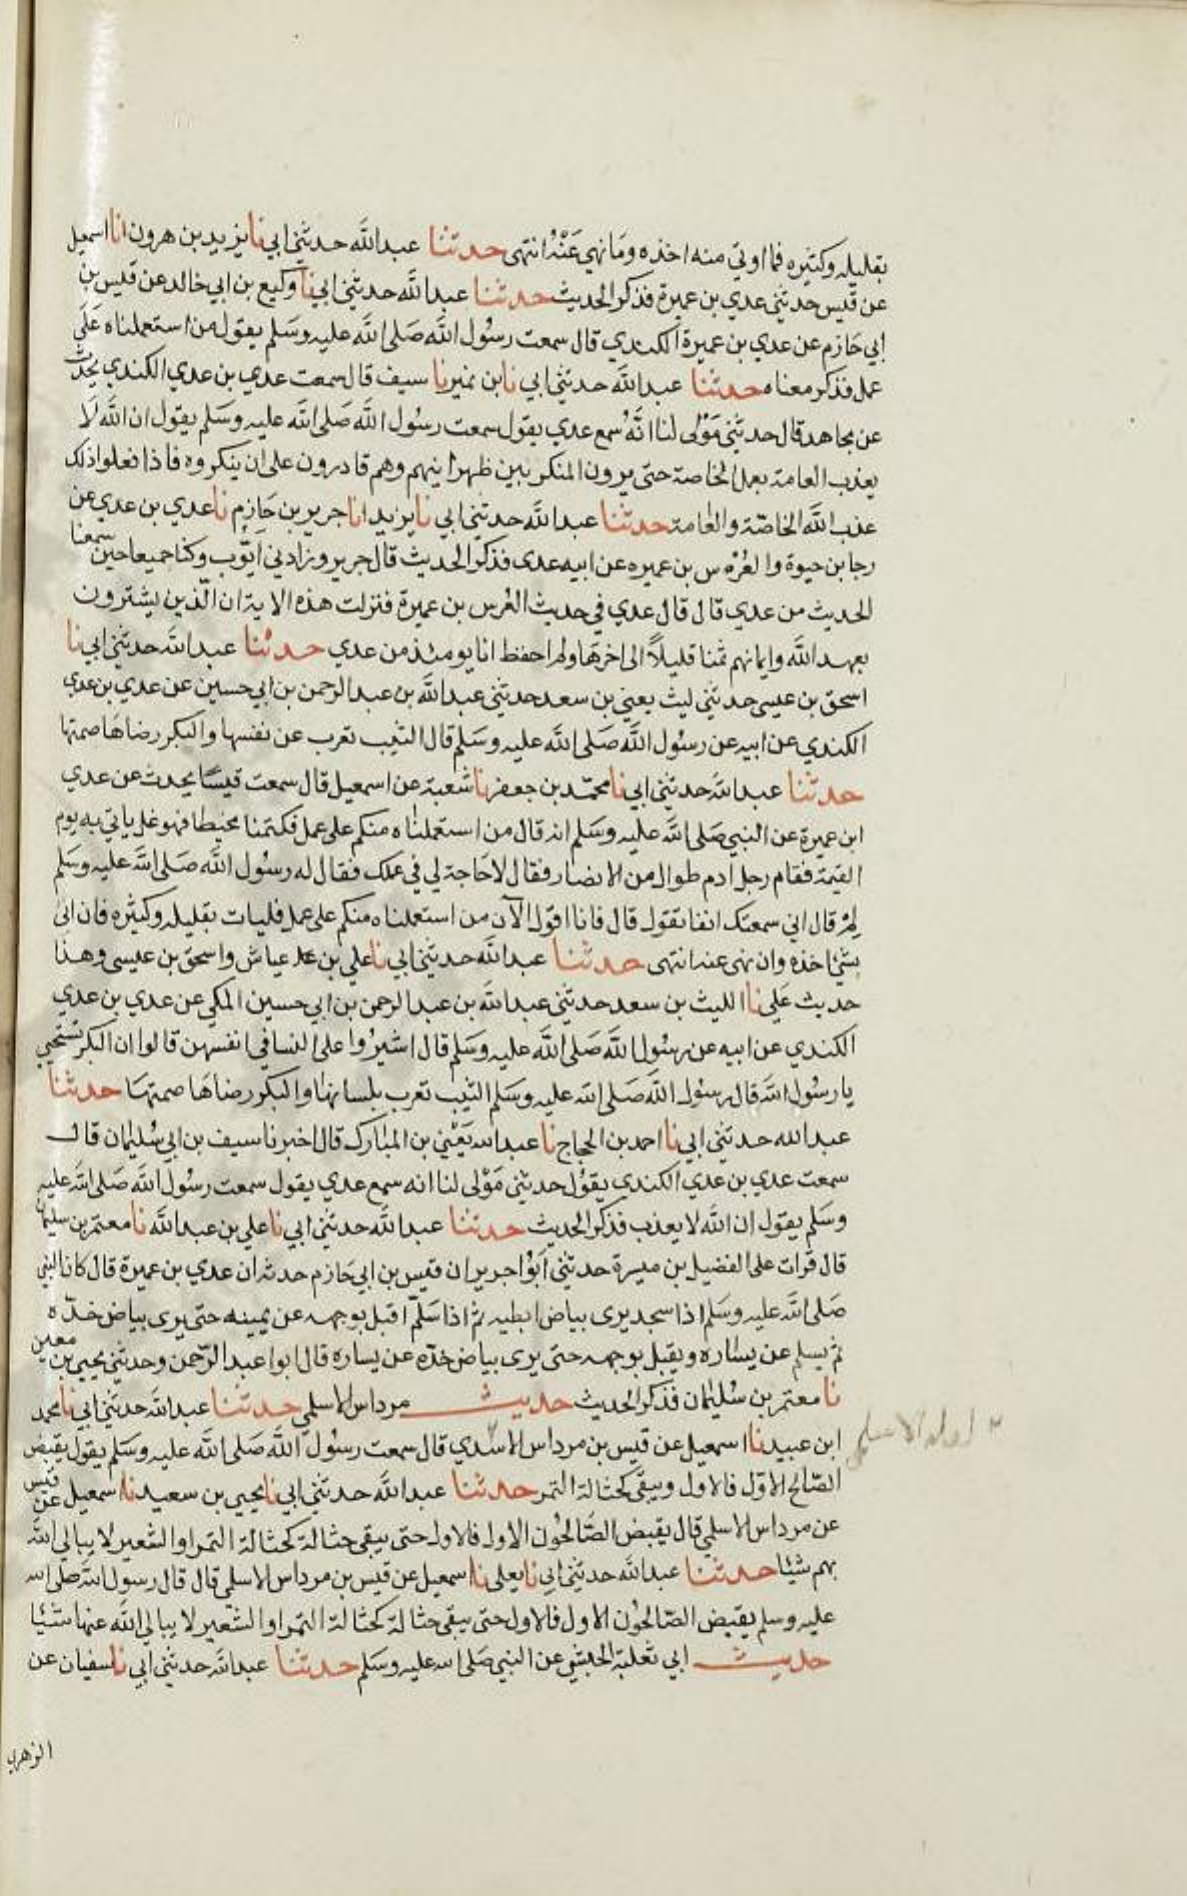 بقليله وكثيره فما اوتي منه اخذه وما نهي عنه انتهى حدثنا عبد الله حدثني ابي نا يزيد بن هرون انا اسمعيل
عن قيس حدثني عدي بن عميرة فذكر الحديث حدثنا عبد الله حدثني ابي نا وكيع بن ابي خالد عن قيس بن
ابي حازم عن عدي بن عميرة الكندي قال سمعت رسول الله صلى الله عليه وسلم يقول من استعملناه على
عمل فذكر معناه حدثنا عبد الله حدثني ابي نا بن نمير نا سيف قال سمعت عدي بن عدي الكندي يحدث
عن مجاهد قال حدثني مولى لنا انه سمع عدي يقول سمعت رسول الله صلى الله عليه وسلم يقول ان الله لا
يعذب العامة بعمل الخاصة حتى يرون المنكر بين ظهرانيهم وهم قادرون على ان ينكروه فاذا فعلوا ذلك
عذب الله الخاصة والعامة حدثنا عبد الله حدثني ابي نا يزيد انا جرير بن حازم نا عدي بن عدي عن
رجا بن حيوة والغرس بن عميره عن ابيه عدى فذكر الحديث قال جرير وزادني ايوب وكنا جميعا حين سمعنا
الحديث من عدي قال قال عدي في حديث الغرس بن عميرة فنزلت هذه الاية ان الذين يشترون
بعهد الله وايمانهم ثمنا قليلا الى اخرها ولم احفظ انا يومئذ من عدي حدثنا عبد الله حدثني ابي نا
اسحق بن عيسى حدثني ليث يعني بن سعد حدثني عبد الله بن عبد الرحمن بن ابي حسين عن عدي بن عدي
الكندي عن ابيه عن رسول الله صلى الله عليه وسلم قال الثيب تعرب عن نفسها والبكر رضاها صمتها
حدثنا عبد الله حدثني ابي نا محمد بن جعفر نا شعبة عن اسمعيل قال سمعت قيسا يحدث عن عدي
ابن عميرة عن النبي صلى الله عليه وسلم انه قال من استعملناه منكم على عمل فكتمنا مخيطا فهو غل ياتي به يوم
القيمة فقام رجل ادم طوال من الانصار فقال لا حاجة لي في عملك فقال له رسول الله صلى الله عليه وسلم
لم قال اني سمعتك انفا تقول قال فانا اقول الآن من استعملناه منكم على عمل فليات بقليله وكثيره فان اتى
بشئ اخذه وان نهى عنه انتهى حدثنا عبد الله حدثني ابي نا علي بن عياش واسحق بن عيسى وهذا
حديث علي نا الليث بن سعد حدثني عبد الله بن عبد الرحمن بن ابي حسين المكي عن عدي بن عدي
الكندي عن ابيه عن رسول الله صلى الله عليه وسلم قال اشيروا على النسا في انفسهن قالوا ان البكر تستحي
يا رسول الله قال رسول الله صلى الله عليه وسلم الثيب تعرب بلسانها والبكر رضاها صمتها حدثنا
عبد الله حدثني ابي نا احمد بن الحجاج نا عبد الله يعني بن المبارك قال اخبرنا سيف بن ابي سليمان قال
سمعت عدي بن عدي الكندي يقول حدثني مولى لنا انه سمع عدي يقول سمعت رسول الله صلى الله عليه
وسلم يقول ان الله لا يعذب فذكر الحديث حدثنا عبد الله حدثني ابي نا علي بن عبد الله نا معتمر بن سليمان
قال قرات على الفضيل بن ميسرة حدثني ابوا جرير ان قيس بن ابي حازم حدثه ان عدي بن عميرة قال كان النبي
صلى الله عليه وسلم اذا سجد يرى بياض ابطيه ثم اذا سلم اقبل بوجهه عن يمينه حتى يرى بياض خده
ثم يسلم عن يساره ويقبل بوجهه حتى يرى بياض خده عن يساره قال ابوا عبد الرحمن وحدثني يحيى بن معين
نا معتمر بن سليمان فذكر الحديث حديث مرداس الاسلمي حدثنا عبد الله حدثني ابي نا محمد
ابن عبيد نا اسمعيل عن قيس بن مرداس الاسدي قال سمعت رسول الله صلى الله عليه وسلم يقول يقبض
الصالح الاول فالاول ويبقى كحثالة التمر حدثنا عبد الله حدثني ابي نا يحيى بن سعيد نا اسمعيل عن قيس
عن مرداس الاسلمي قال يقبض الصالحون الاول فالاول حتى يبقى حثالة كحثالة التمر او الشعير لا يبالي الله
بهم شيئا حدثنا عبد الله حدثني ابي نا يعلى نا اسمعيل عن قيس بن مرداس الاسلمي قال قال رسول الله صلى الله
عليه وسلم يقبض الصالحون الاول فالاول حتى يبقى حثالة كحثالة التمر او الشعير لا يبالي الله عنها شيئا
حديث ابي ثعلبة الخشني عن النبي صلى الله عليه وسلم حدثنا عبد الله حدثني ابي نا سفيان عن
الزهري